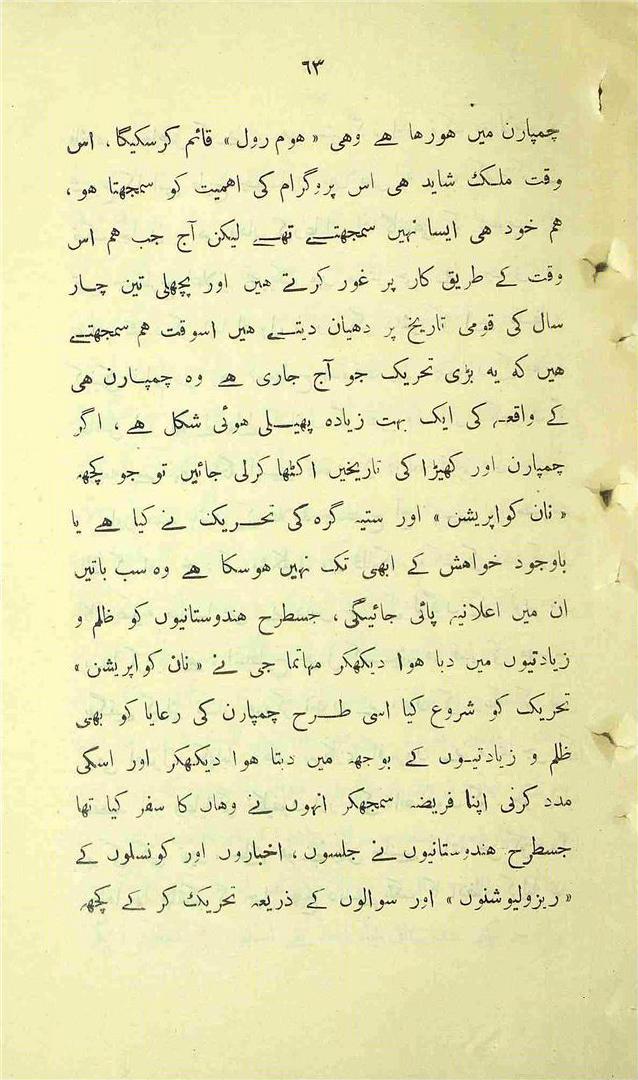 ٦٣
چمپارن میں هورها هے وهی «هوم رول» قائم کرسکیگا، اس
وقت ملک شاید هی اس پروگرام کی اهمیت کو سمجهتا هو،
هم خود هی ایسا نہیں سمجهتے تهے لیکن آج جب هم اس
وقت کے طریق کار پر غور کرتے هیں اور پچهلی تین چار
سال کی قومی تاریخ پر دهیان دیتے هیں اسوقت هم سمجهتے
هیں که یه بڑی تحریک جو آج جاری هے وه چمپارن هی
کے واقعہ کی ایک بہت زیاده پهیلی هوئی شکل هے، اگر
چمپارن اور کهیڑا کی تاریخیں اکٹها کرلی جائیں تو جو کچهہ
«نان کواپریشن» اور ستیہ گره کی تحریک نے کیا هے یا
باوجود خواهش کے ابهی تک نہیں هوسکا هے وه سب باتیں
ان میں اعلانیہ پائی جائینگی، جسطرح هندوستانیوں کو ظلم و
زیادتیوں میں دبا هوا دیکهکر مہاتما جی نے «نان کواپریشن»
تحریک کو شروع کیا اسی طرح چمپارن کی رعایا کو بهی
ظلم و زیادتیوں کے بوجهہ میں دبتا هوا دیکهکر اور اسکی
مدد کرنی اپنا فریضہ سمجهکر انہوں نے وهاں کا سفر کیا تها
جسطرح هندوستانیوں نے جلسوں، اخباروں اور کونسلوں کے
«ریزولیوشنوں» اور سوالوں کے ذریعہ تحریک کر کے کچهہ